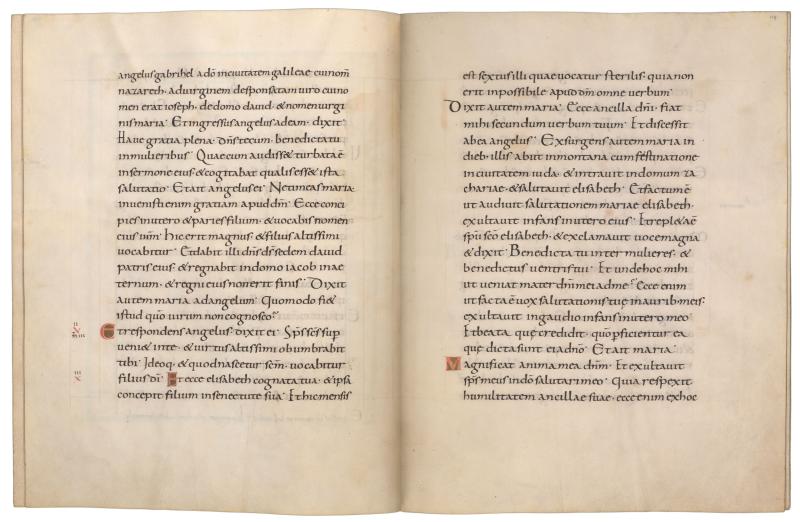 angelus gabrihel a dō in civitatem galileae cui nom̄
nazareth· ad virginem desponsatam viro cui no
men erat ioseph· de domo david· & nomen virgi
nis maria· Et ingressus angelus ad eam· dixit·
Have gratia plena· dn̄s tecum· benedicta tu
in mulieribus· Quae cum audisset turbata ē
in sermone eius· & cogitabat qualis esset ista
salutatio· Et ait angelus ei· Ne timeas maria
invenisti enim gratiam apud dm̄· Ecce conci
pies in utero & paries filium· & vocabis nomen
eius ihm̄· Hic erit magnus· & filius altissimi
vocabitur· Et dabit illi dn̄s ds̄ sedem david
patris eius· & regnabit in domo iacob in ae
ternum· & regni eius non erit finis· Dixit
autem maria ad angelum· Quomodo fiet
istud qūo virum non cognosco·
Et respondens angelus· dixit ei· Sp̄s sc̄s sup
veniet in te· & virtus altissimi obumbrabit
tibi· Ideoq· & quod nascetur scm̄· vocabitur
filius dī· Et ecce elisabeth cognata tua· & ipsa
concepit filium in senectute sua· Et hic mensis
est sextus illi quae vocatur sterilis· quia non
erit inpossibile apud dm̄ omne verbum·
Dixit autem maria· Ecce ancilla dn̄i· fiat
mihi secundum verbum tuum· Et discessit
ab ea angelus· Exsurgens autem maria in
dieb· illis abiit in montana cum festinatione
in civitatem iuda· & intravit in domum za
chariae· & salutavit elisabeth· Et factum ē
ut audivit salutationem mariae elisabeth·
exultavit infans in utero eius· Et repleta ē
spū scō elisabeth· & exclamavit voce magna
& dixit· Benedicta tu inter mulieres· &
benedictus ventris tui· Et unde hoc mihi
ut veniat mater dn̄i mei ad me· Ecce enim
ut facta ē vox salutationis tuę in aurib· meis·
exultavit in gaudio infans in utero meo·
Et beata quę credidit· qūo pficientur ea
quę dicta sunt ei a dn̄o· Et ait maria·
Magnificat anima mea dn̄m· Et exultavit
sp̄s meus in dō salutari meo· Quia respexit
humilitatem ancillae suae· ecce enim ex hoc